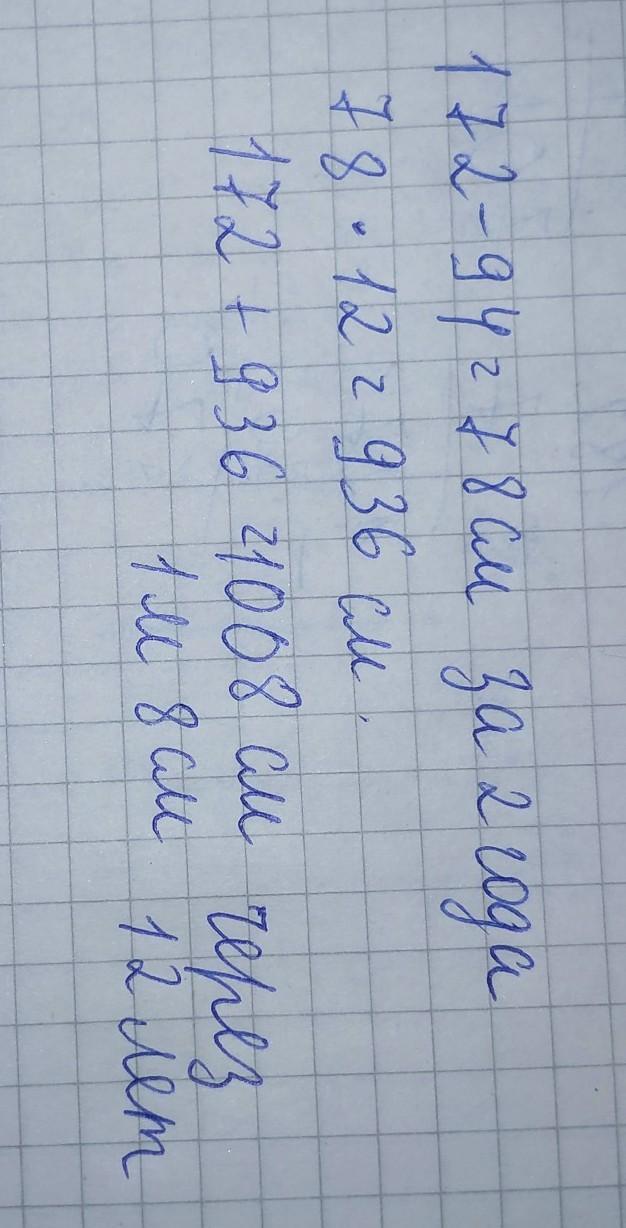 172-94=78см за 2 года
78·12=936 см.
172+936=1008 см через
1м 8см 12 лет